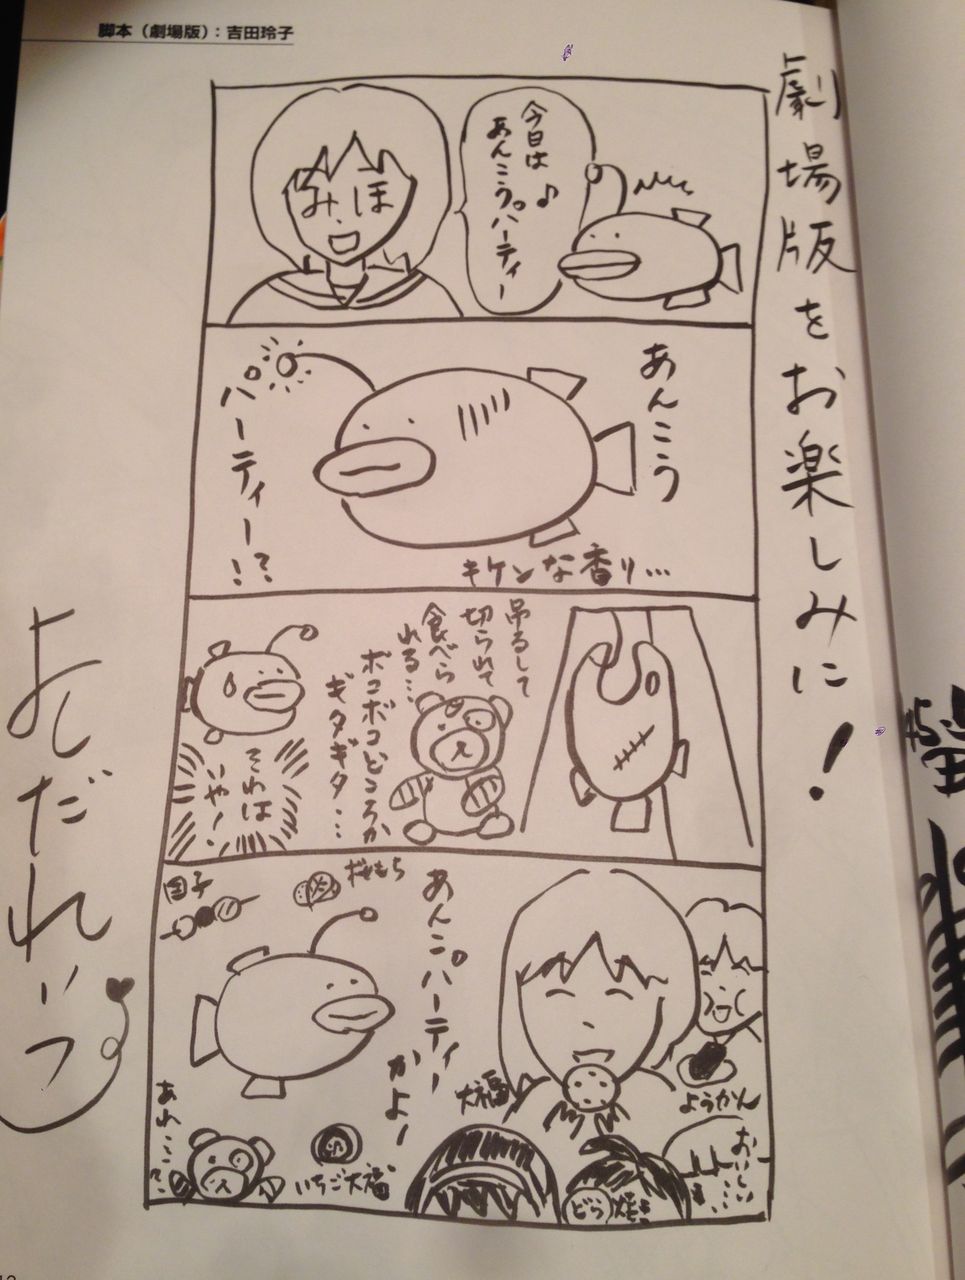 脚本（劇場版）：吉田玲子
劇場版をお楽しみに！
今日は
あんこうパーティー♪
みほ
あんこう
パーティー！？
キケンな香り…
吊るして
切られて
食べら
れる…
ボコボコどころか
ギタギタ…
それは
いやー
あんこパーティー
かよー
団子
桜もち
大福
ようかん
おいしい…
どら焼き
いちご大福
あれ…？
よしだれいっ